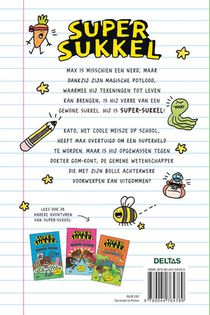 SUPER
SUKKEL
MAX IS MISSCHIEN EEN NERD, MAAR
DANKZIJ ZIJN MAGISCHE POTLOOD,
WAARMEE HIJ TEKENINGEN TOT LEVEN
KAN BRENGEN, IS HIJ VERRE VAN EEN
GEWONE SUKKEL. HIJ IS SUPER-SUKKEL!
KATO, HET COOLE MEISJE OP SCHOOL,
HEEFT MAX OVERTUIGD OM EEN SUPERHELD
TE WORDEN. MAAR IS HIJ OPGEWASSEN TEGEN
DOKTER GOM-KONT, DE GEMENE WETENSCHAPPER
DIE MET ZIJN BOLLE ACHTERWERK
VOORWERPEN KAN UITGOMMEN?
LEES OOK DE
ANDERE AVONTUREN
VAN SUPER-SUKKEL
SUPER
SUKKEL
SUPER
SUKKEL
SUPER
SUKKEL
DELTAS
NUR 282